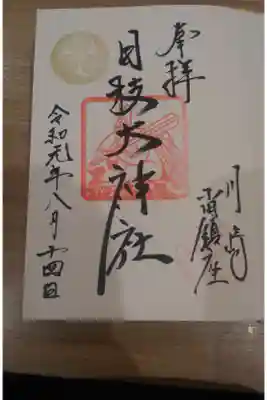 奉拝
川崎
鎮座
日枝大神社
令和元年八月十四日